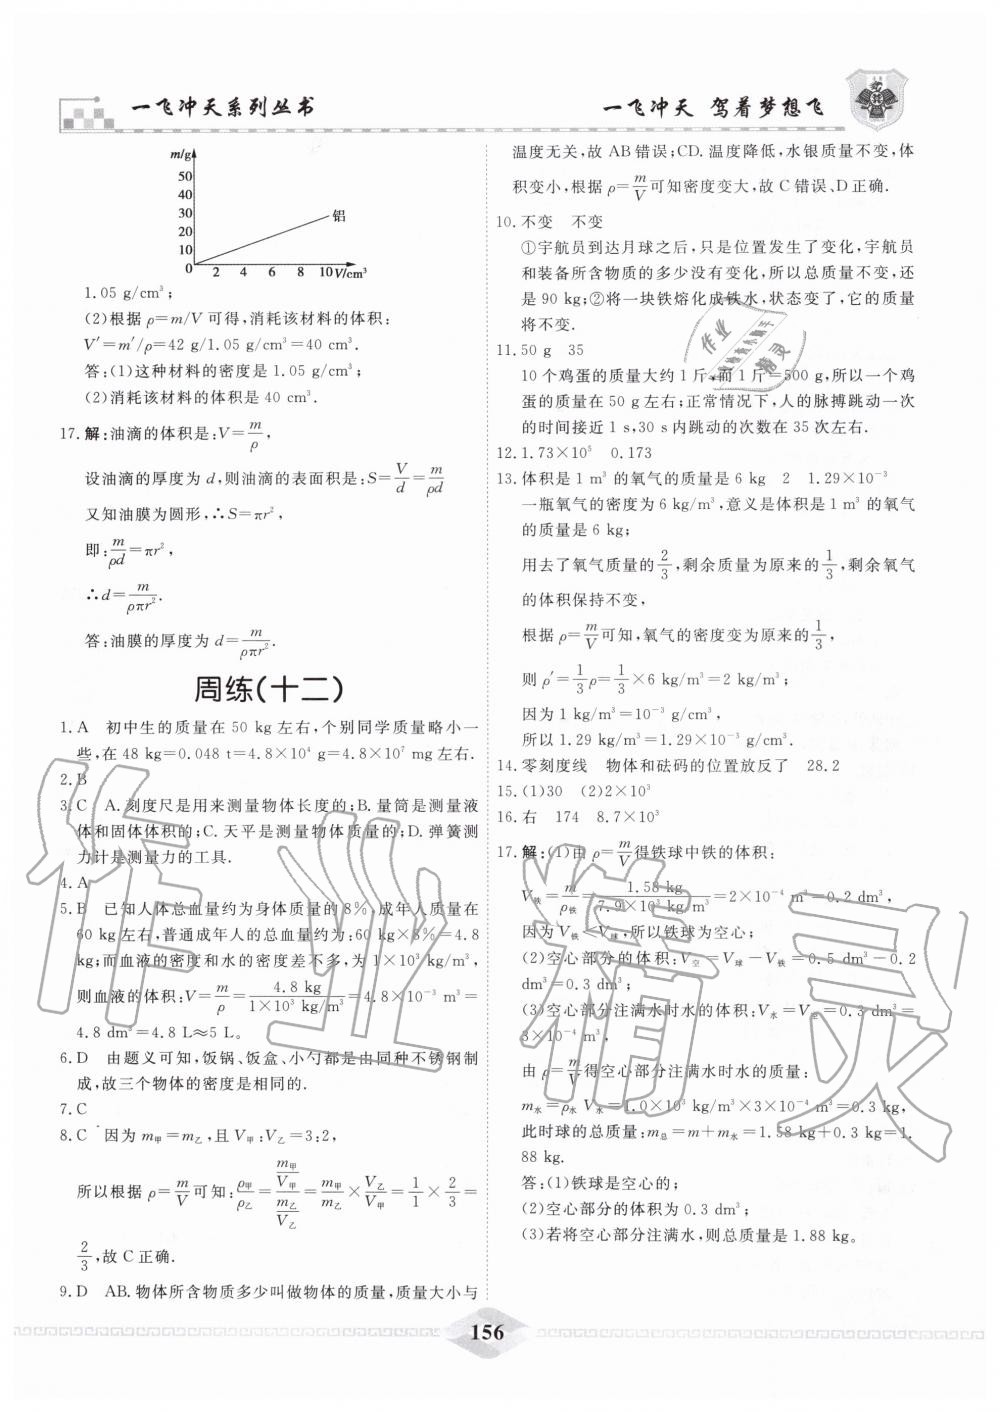 一飞冲天系列丛书
一飞冲天 驾着梦想飞
m/g
50
40
30
20
10
0 2 4 6 8 10 V/cm³
铝
1.05 g/cm³;
(2)根据 ρ=m/V 可得,消耗该材料的体积:
V′=m′/ρ=42 g/1.05 g/cm³=40 cm³.
答:(1)这种材料的密度是 1.05 g/cm³;
(2)消耗该材料的体积是 40 cm³.
17.解:油滴的体积是:V=m/ρ,
设油滴的厚度为 d,则油滴的表面积是:S=V/d=m/ρd
又知油膜为圆形,∴S=πr²,
即:m/ρd=πr²,
∴d=m/ρπr².
答:油膜的厚度为 d=m/ρπr².
周练(十二)
1.A 初中生的质量在 50 kg 左右,个别同学质量略小一
些,在 48 kg=0.048 t=4.8×10⁴ g=4.8×10⁷ mg左右.
2.B
3.C A.刻度尺是用来测量物体长度的;B.量筒是测量液
体和固体体积的;C.天平是测量物体质量的;D.弹簧测
力计是测量力的工具.
4.A
5.B 已知人体总血量约为身体质量的8%,成年人质量在
60 kg左右,普通成年人的总血量约为:60 kg×8%=4.8
kg;而血液的密度和水的密度差不多,为 1×10³ kg/m³,
则血液的体积:V=m/ρ=4.8 kg/1×10³ kg/m³=4.8×10⁻³ m³=
4.8 dm³=4.8 L≈5 L。
6.D 由题义可知,饭锅、饭盒、小勺都是由同种不锈钢制
成,故三个物体的密度是相同的.
7.C
8.C 因为 m甲=m乙,且 V甲:V乙=3:2,
所以根据 ρ=m/V可知:ρ甲/ρ乙=(m甲/V甲)/(m乙/V乙)=m甲/m乙×V乙/V甲=1/1×2/3=
2/3,故 C 正确.
9.D AB.物体所含物质多少叫做物体的质量,质量大小与
温度无关,故 AB错误;CD.温度降低,水银质量不变,体
积变小,根据 ρ=m/V可知密度变大,故 C 错误、D 正确.
10.不变 不变
①宇航员到达月球之后,只是位置发生了变化,宇航员
和装备所含物质的多少没有变化,所以总质量不变,还
是 90 kg;②将一块铁熔化成铁水,状态变了,它的质量
将不变.
11.50 g 35
10 个鸡蛋的质量大约 1 斤,而 1 斤=500 g,所以一个鸡
蛋的质量在 50 g左右;正常情况下,人的脉搏跳动一次
的时间接近 1 s,30 s内跳动的次数在 35 次左右.
12.1.73×10⁵ 0.173
13.体积是 1 m³ 的氧气的质量是 6 kg 2 1.29×10⁻³
一瓶氧气的密度为 6 kg/m³,意义是体积是1 m³ 的氧气
的质量是 6 kg;
用去了氧气质量的2/3,剩余质量为原来的1/3,剩余氧气
的体积保持不变,
根据 ρ=m/V可知,氧气的密度变为原来的1/3,
则 ρ′=1/3ρ=1/3×6 kg/m³=2 kg/m³;
因为 1 kg/m³=10⁻³ g/cm³,
所以 1.29 kg/m³=1.29×10⁻³ g/cm³.
14.零刻度线 物体和砝码的位置放反了 28.2
15.(1)30 (2)2×10³
16.右 174 8.7×10³
17.解:(1)由 ρ=m/V得铁球中铁的体积:
V铁=m/ρ铁=1.58 kg/7.9×10³ kg/m³=2×10⁻⁴ m³=0.2 dm³,
因为 V铁<V球,所以铁球为空心;
(2)空心部分的体积:V空=V球-V铁=0.5 dm³-0.2
dm³=0.3 dm³;
(3)空心部分注满水时水的体积:V水=V空=0.3 dm³=
3×10⁻⁴ m³,
由 ρ=m/V得空心部分注满水时水的质量:
m水=ρ水 V水=1.0×10³ kg/m³×3×10⁻⁴ m³=0.3 kg,
此时球的总质量:m总=m+m水=1.58 kg+0.3 kg=1.
88 kg.
答:(1)铁球是空心的;
(2)空心部分的体积为 0.3 dm³;
(3)若将空心部分注满水,则总质量是 1.88 kg。
156
作业精灵